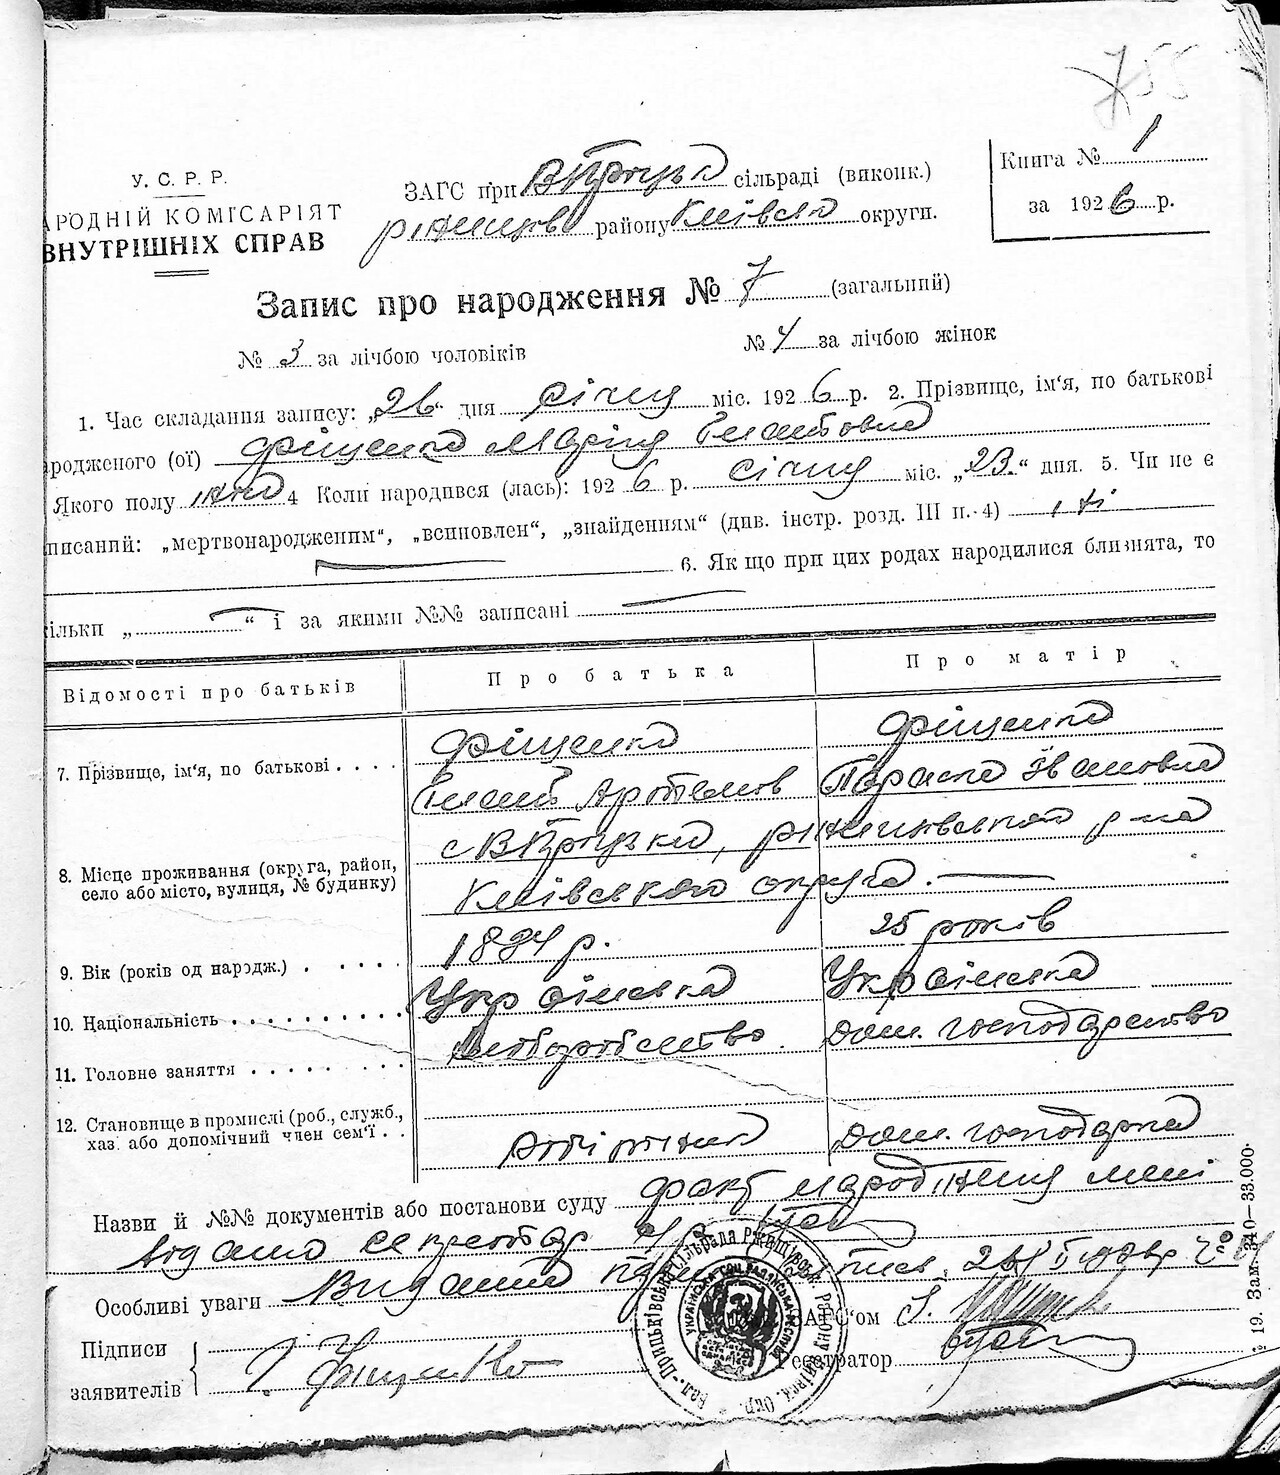 755
У. С. Р. Р.
АРОДНІЙ КОМІСАРІЯТ
ВНУТРІШНІХ СПРАВ
ЗАГС при сільраді (виконк.)
району Київська округи.
Книга № 1
за 1926 р.
Запис про народження № 7 (загальний)
№ 3 за лічбою чоловіків № 4 за лічбою жінок
1. Час складання запису: „26“ дня Січня міс. 1926 р. 2. Прізвище, ім‘я, по батькові
ародженого (ої) Фіщенко Марія Гнатовна
Якого полу жін 4 Коли народився (лась): 1926 р. Січня міс. „23.“ дня. 5. Чи не є
писаний: „мертвонародженим“, „всиновлен“, „знайденням“ (див. інстр. розд. III п. 4) ні
6. Як що при цих родах народилися близнята, то
ільки „ “ і за якими №№ записані
Відомості про батьків Про батька Про матір
7. Прізвище, ім‘я, по батькові . . . . Фіщенко Фіщенко
Гнат Артемов Параска Івановна
8. Місце проживання (округа, район,
село або місто, вулиця, № будинку)
с р-на
Київського округа.
9. Вік (років од нарэдж.) . . . . . 1894 р. 25 років
10. Національність . . . . . . . . . . Українська Українська
11. Головне заняття . . . . . . . . хлоборобство дом. господарство
12. Становище в промислі (роб., служб.,
хаз. або допомічний член сем‘ї . . дом. господарка
Назви й №№ документів або постанови суду факт народження мені
відомо секретар
Особливі уваги Видання
Підписи
заявителів Фіщенко
АГС‘ом
Реєстратор
УКРАЇНСЬКА СОЦ. РАДЯНСЬКА
19. Зам. 340—33.000.